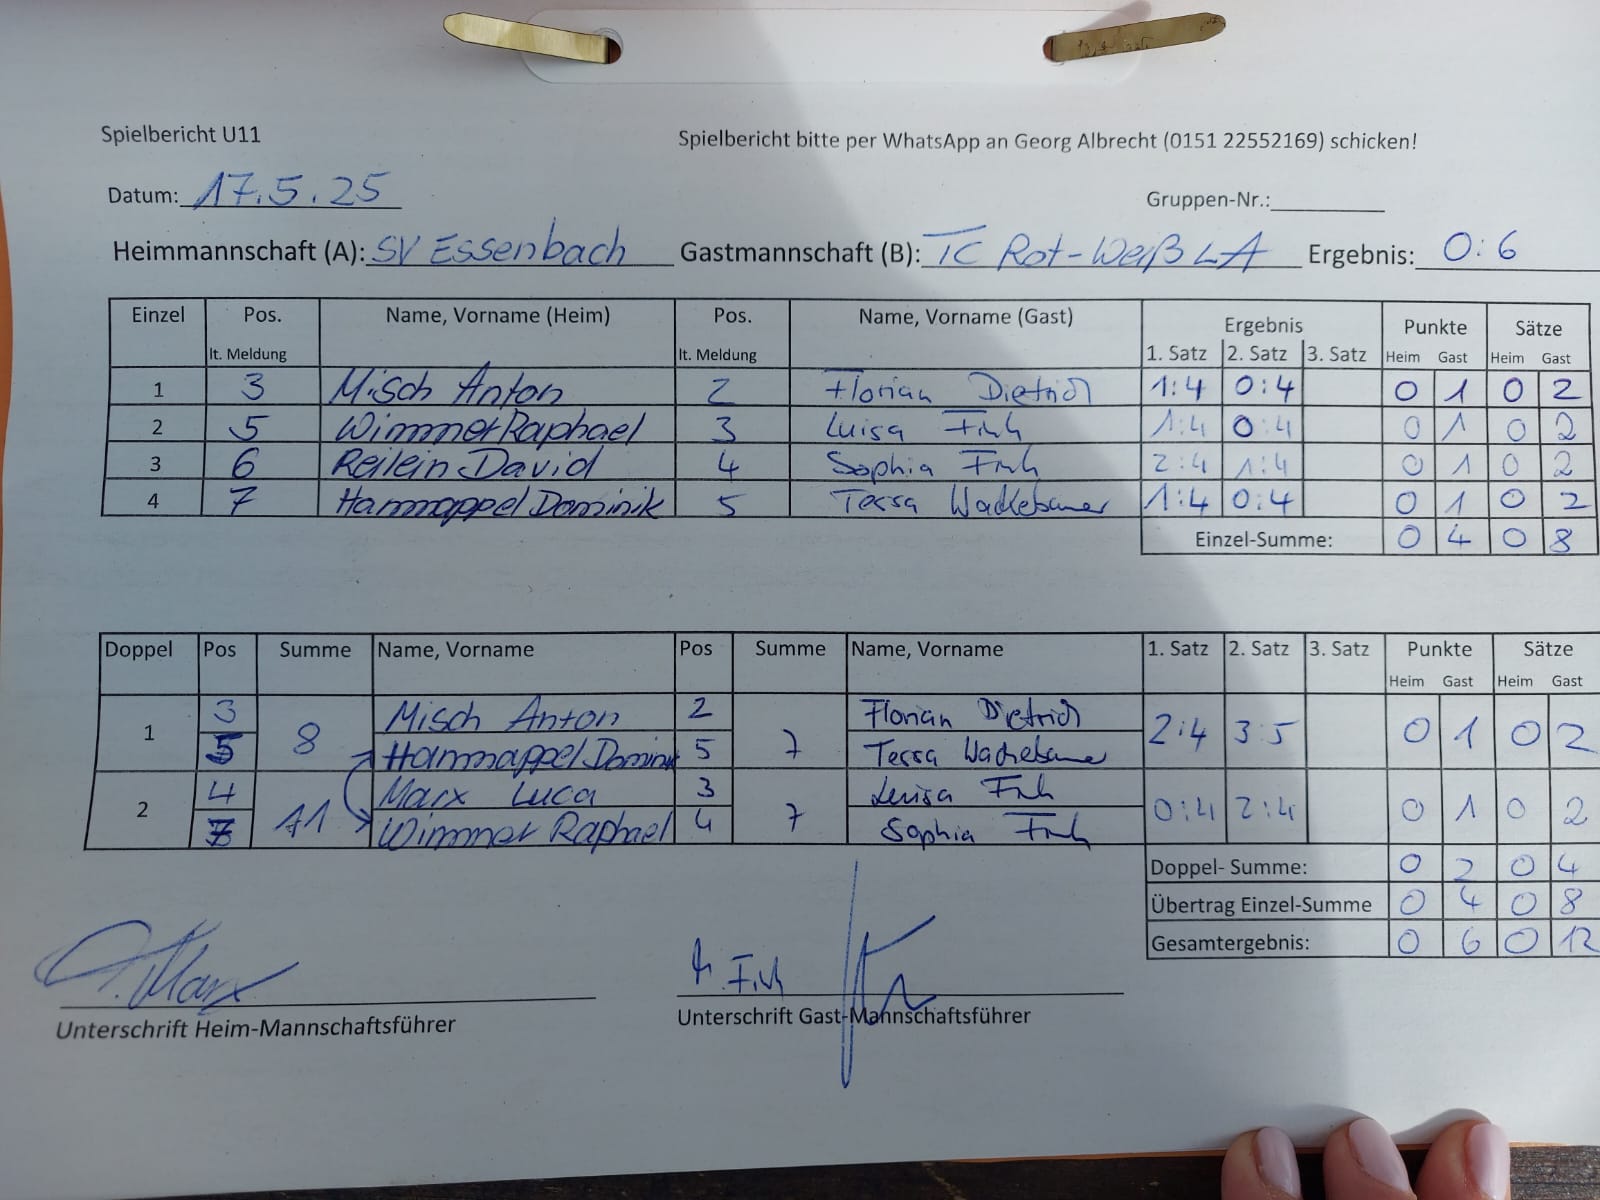 Spielbericht U11
Spielbericht bitte per WhatsApp an Georg Albrecht (0151 22552169) schicken!
Datum: 17.5.25
Gruppen-Nr.:
Heimmannschaft (A): SV Essenbach Gastmannschaft (B): TC Rot-Weiß LA Ergebnis: 0:6
Einzel Pos. Name, Vorname (Heim) Pos. Name, Vorname (Gast) Ergebnis Punkte Sätze
lt. Meldung lt. Meldung 1. Satz 2. Satz 3. Satz Heim Gast Heim Gast
1 3 Misch Anton 2 Florian Dietrich 1:4 0:4 0 1 0 2
2 5 Wimmer Raphael 3 Luisa 1:4 0:4 0 1 0 2
3 6 Reilein David 4 Sophia 2:4 1:4 0 1 0 2
4 7 Hammappel Dominik 5 Tessa 1:4 0:4 0 1 0 2
Einzel-Summe: 0 4 0 8
Doppel Pos Summe Name, Vorname Pos Summe Name, Vorname 1. Satz 2. Satz 3. Satz Punkte Sätze
Heim Gast Heim Gast
1 8 7 2:4 3:5 0 1 0 2
3 Misch Anton 2 Florian Dietrich
5 Hammappel Dominik 5 Tessa
2 11 7 0:4 2:4 0 1 0 2
4 Marx Luca 3 Luisa
Wimmer Raphael 4 Sophia
Doppel- Summe: 0 2 0 4
Übertrag Einzel-Summe 0 4 0 8
Gesamtergebnis: 0 6 0 12
Marx
Unterschrift Heim-Mannschaftsführer
Unterschrift Gast-Mannschaftsführer